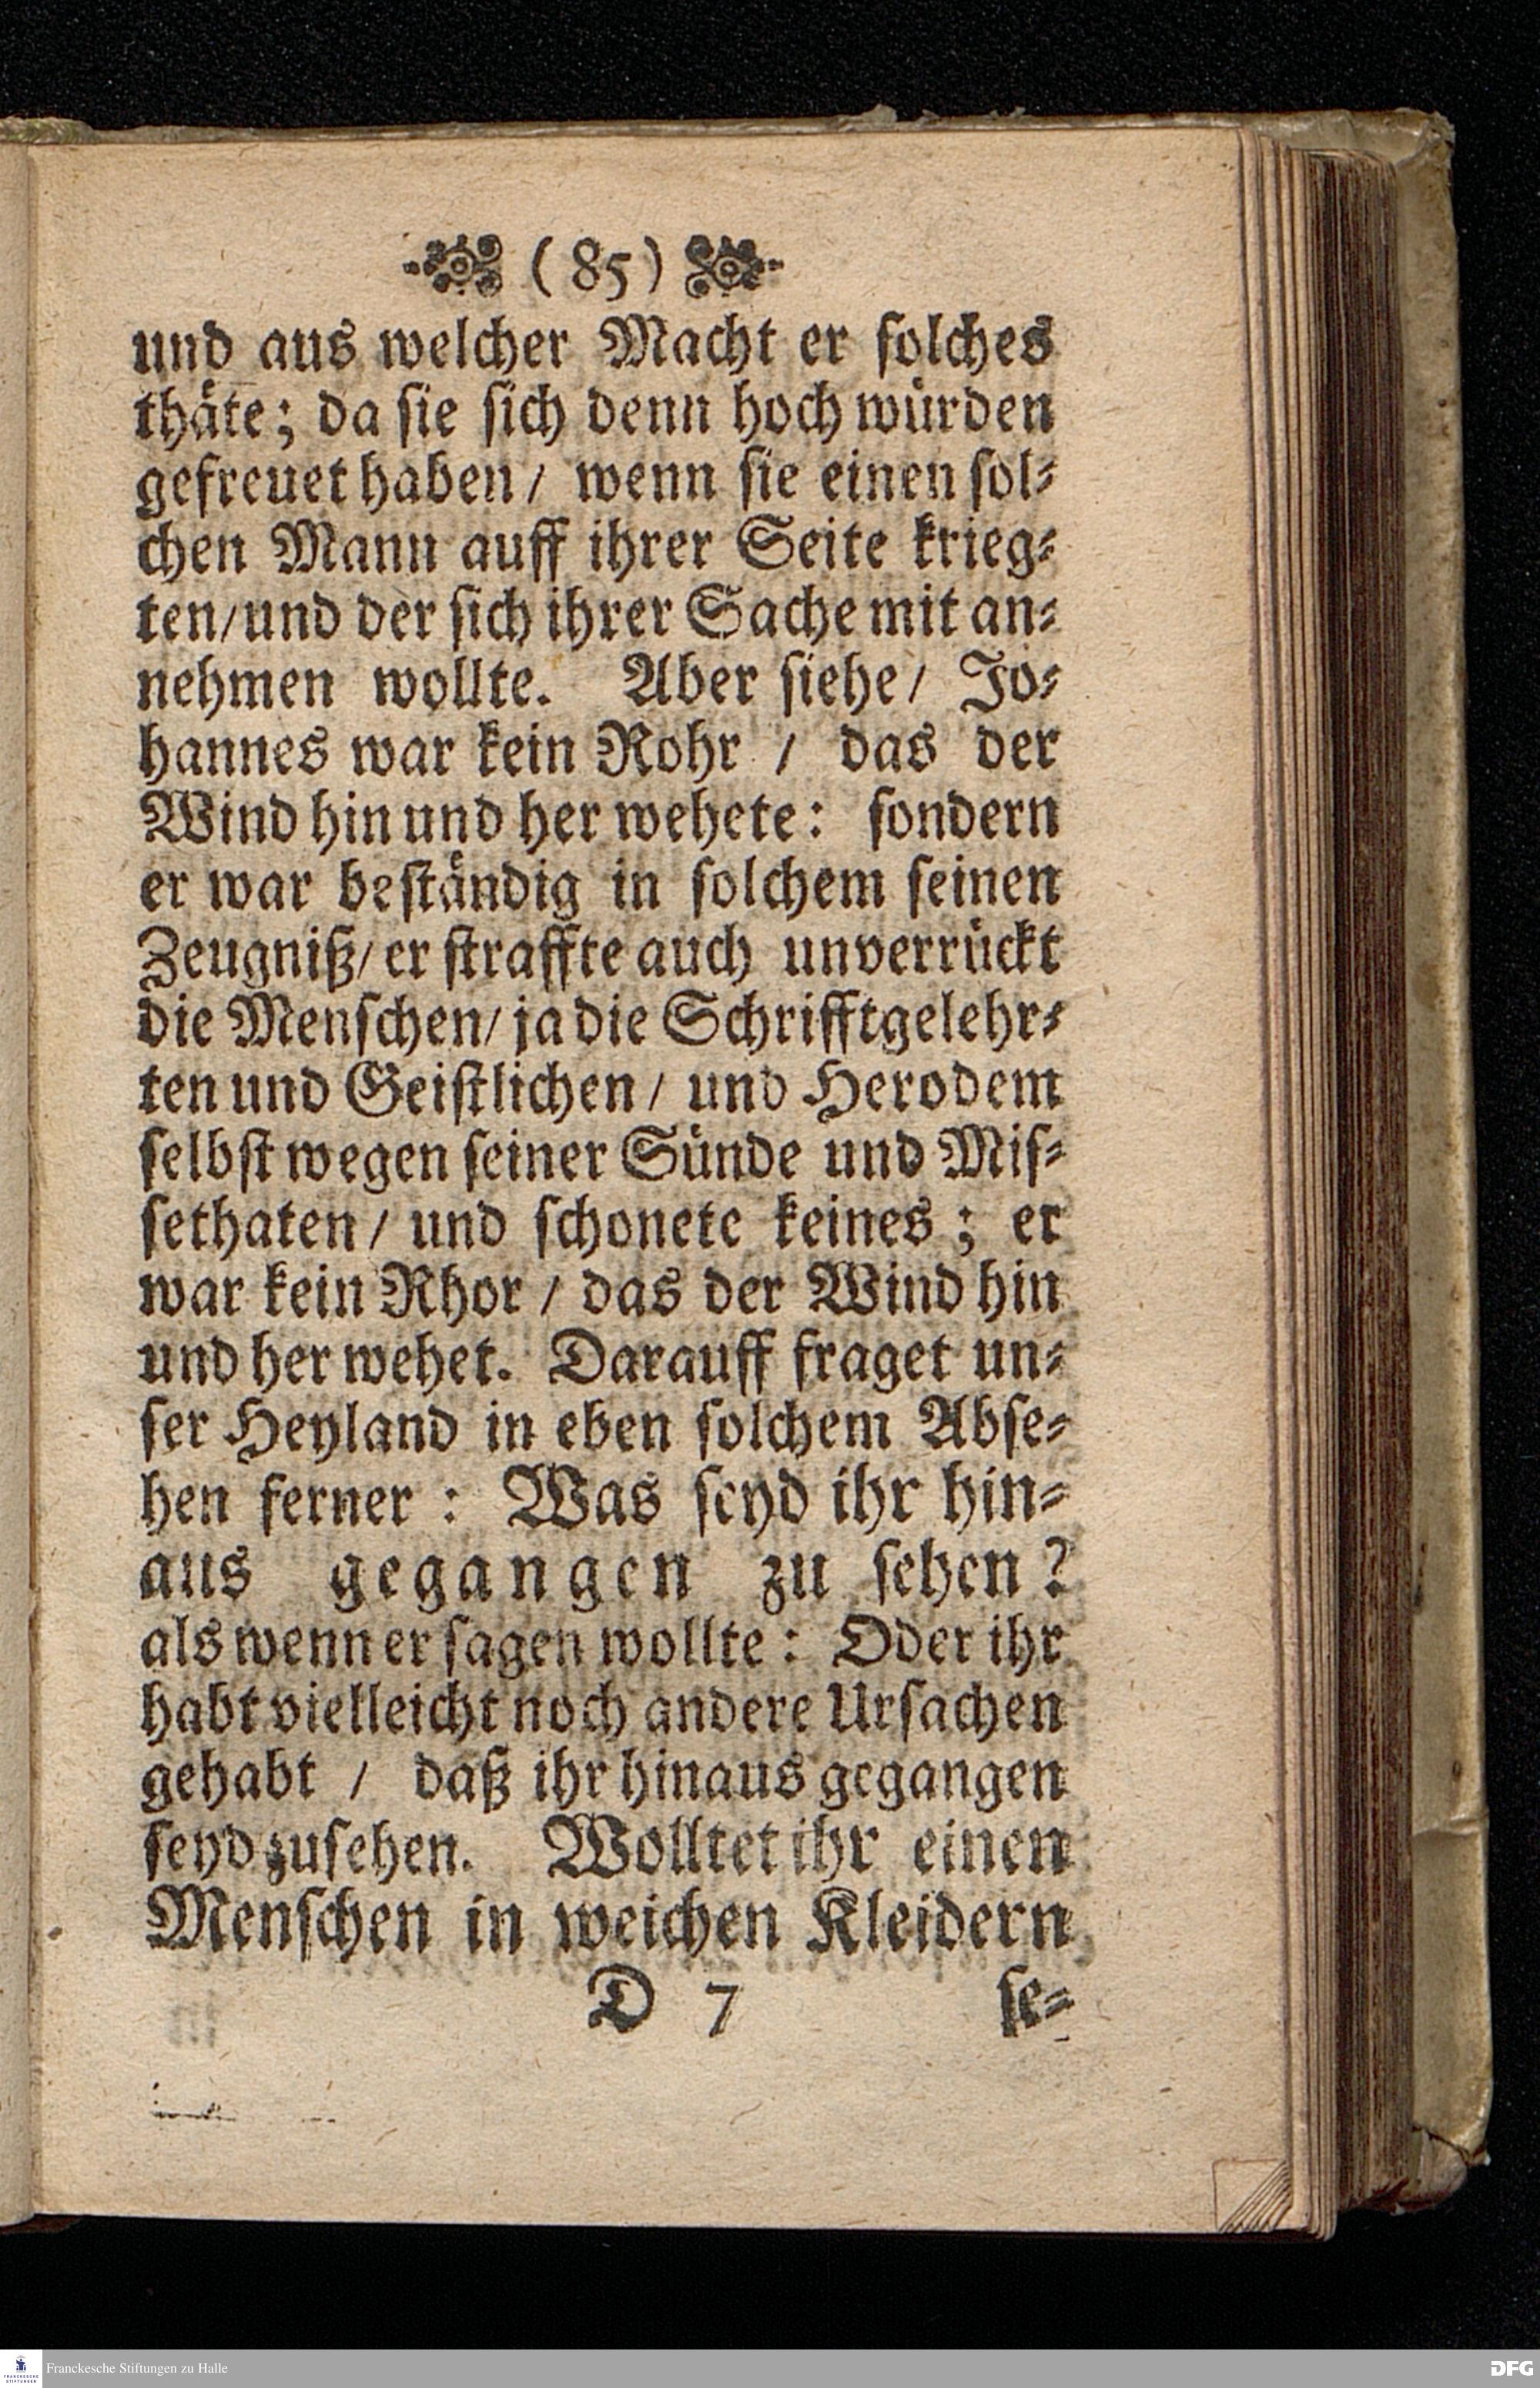 ( 85 )
und aus welcher Macht er solches
thäte; da sie sich denn hoch würden
gefreuet haben / wenn sie einen sol-
chen Mann auff ihrer Seite krieg-
ten/und der sich ihrer Sache mit an-
nehmen wollte. Aber siehe / Jo-
hannes war kein Rohr / das der
Wind hin und her wehete: sondern
er war beständig in solchem seinen
Zeugniß/ er straffte auch unverrückt
die Menschen/ ja die Schrifftgelehr-
ten und Geistlichen / und Herodem
selbst wegen seiner Sünde und Mis-
sethaten / und schonete keines ; er
war kein Rhor / das der Wind hin
und her wehet. Darauff fraget un-
ser Heyland in eben solchem Abse-
hen ferner : Was seyd ihr hin-
aus gegangen zu sehen ?
als wenn er sagen wollte : Oder ihr
habt vielleicht noch andere Ursachen
gehabt / daß ihr hinaus gegangen
seyd zusehen. Wolltet ihr einen
Menschen in weichen Kleidern
D 7 se-
Franckesche Stiftungen zu Halle
DFG